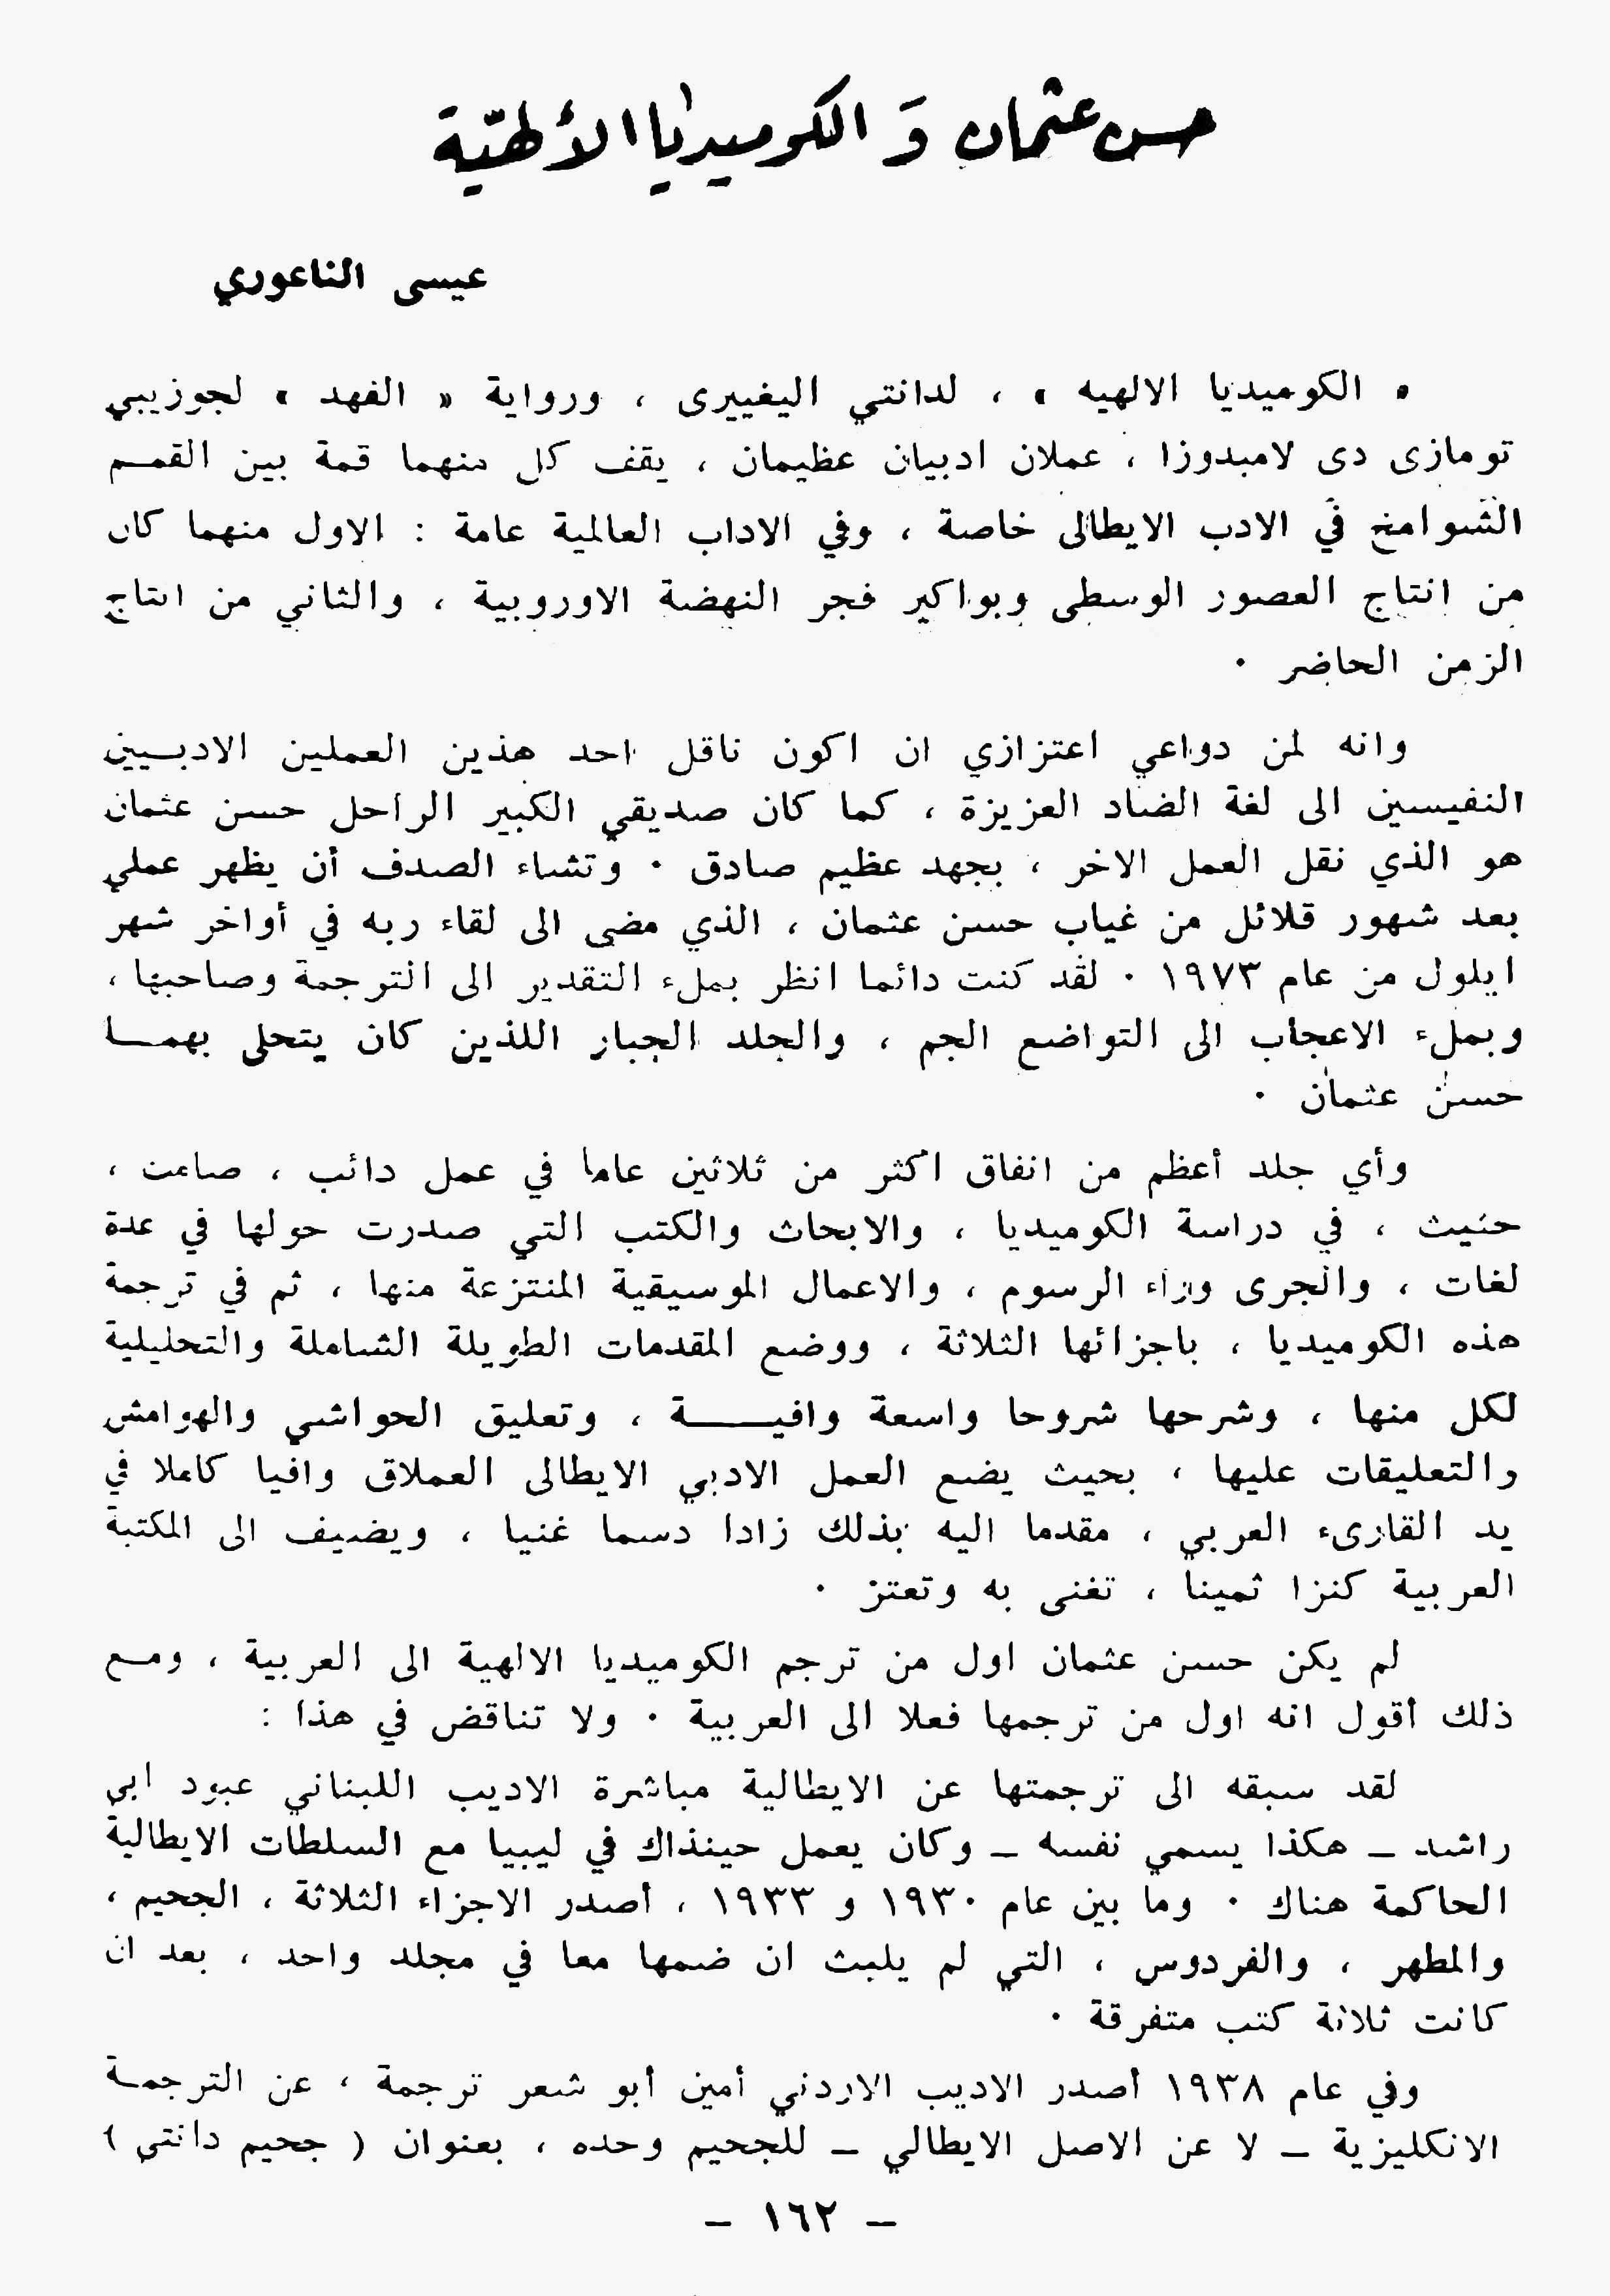 حسن عثمان وَ الكوميديا الألهيّة
عيسى الناعوري
« الكوميديا الالهيه » ، لدانتي اليغييرى ، ورواية « الفهد » لجوزيبي
تومازى دى لامبدوزا ، عملان ادبيان عظيمان ، يقف كل منهما قمة بين القمم
الشوامخ في الادب الايطالى خاصة ، وفي الاداب العالمية عامة : الاول منهما كان
من انتاج العصور الوسطى وبواكير فجر النهضة الاوروبية ، والثاني من انتاج
الزمن الحاضر ٠
وانه لمن دواعي اعتزازي ان اكون ناقل احد هذين العملين الادبيين
النفيسين الى لغة الضاد العزيزة ، كما كان صديقي الكبير الراحل حسن عثمان
هو الذي نقل العمل الاخر ، بجهد عظيم صادق ٠ وتشاء الصدف أن يظهر عملي
بعد شهور قلائل من غياب حسن عثمان ، الذي مضى الى لقاء ربه في أواخر شهر
ايلول من عام ١٩٧٣ ٠ لقد كنت دائما انظر بملء التقدير الى الترجمة وصاحبها ،
وبملء الاعجاب الى التواضع الجم ، والجلد الجبار اللذين كان يتحلى بهمــا
حسن عثمان ٠
وأي جلد أعظم من انفاق اكثر من ثلاثين عاما في عمل دائب ، صامت ،
حثيث ، في دراسة الكوميديا ، والابحاث والكتب التي صدرت حولها في عدة
لغات ، والجرى وراء الرسوم ، والاعمال الموسيقية المنتزعة منها ، ثم في ترجمة
هذه الكوميديا ، باجزائها الثلاثة ، ووضع المقدمات الطويلة الشاملة والتحليلية
لكل منها ، وشرحها شروحا واسعة وافيــــة ، وتعليق الحواشي والهوامش
والتعليقات عليها ، بحيث يضع العمل الادبي الايطالى العملاق وافيا كاملا في
يد القارىء العربي ، مقدما اليه بذلك زادا دسما غنيا ، ويضيف الى المكتبة
العربية كنزا ثمينا ، تغنى به وتعتز ٠
لم يكن حسن عثمان اول من ترجم الكوميديا الالهية الى العربية ، ومـع
ذلك أقول انه اول من ترجمها فعلا الى العربية ٠ ولا تناقض في هذا :
لقد سبقه الى ترجمتها عن الايطالية مباشرة الاديب اللبناني عبود ابي
راشد ـ هكذا يسمي نفسه ـ وكان يعمل حينذاك في ليبيا مع السلطات الايطالية
الحاكمة هناك ٠ وما بين عام ١٩٣٠ و ١٩٣٣ ، أصدر الاجزاء الثلاثة ، الجحيم ،
والمطهر ، والفردوس ، التي لم يلبث ان ضمها معا في مجلد واحد ، بعد ان
كانت ثلاثة كتب متفرقة ٠
وفي عام ١٩٣٨ أصدر الاديب الاردني أمين أبو شعر ترجمة ، عن الترجمـة
الانكليزية ـ لا عن الاصل الايطالي ـ للجحيم وحده ، بعنوان ( جحيم دانتي )
ـ ١٦٢ ـ